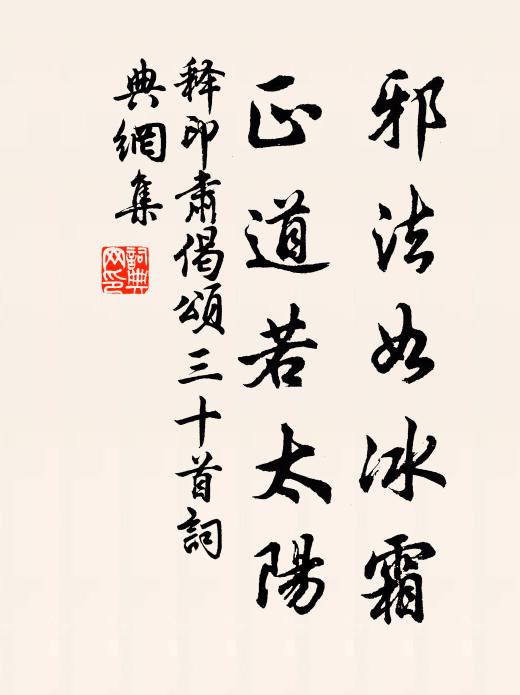 邪法如冰霜
正道若太陽
释印肃偈頌三十首詞
典網集
詞典網印